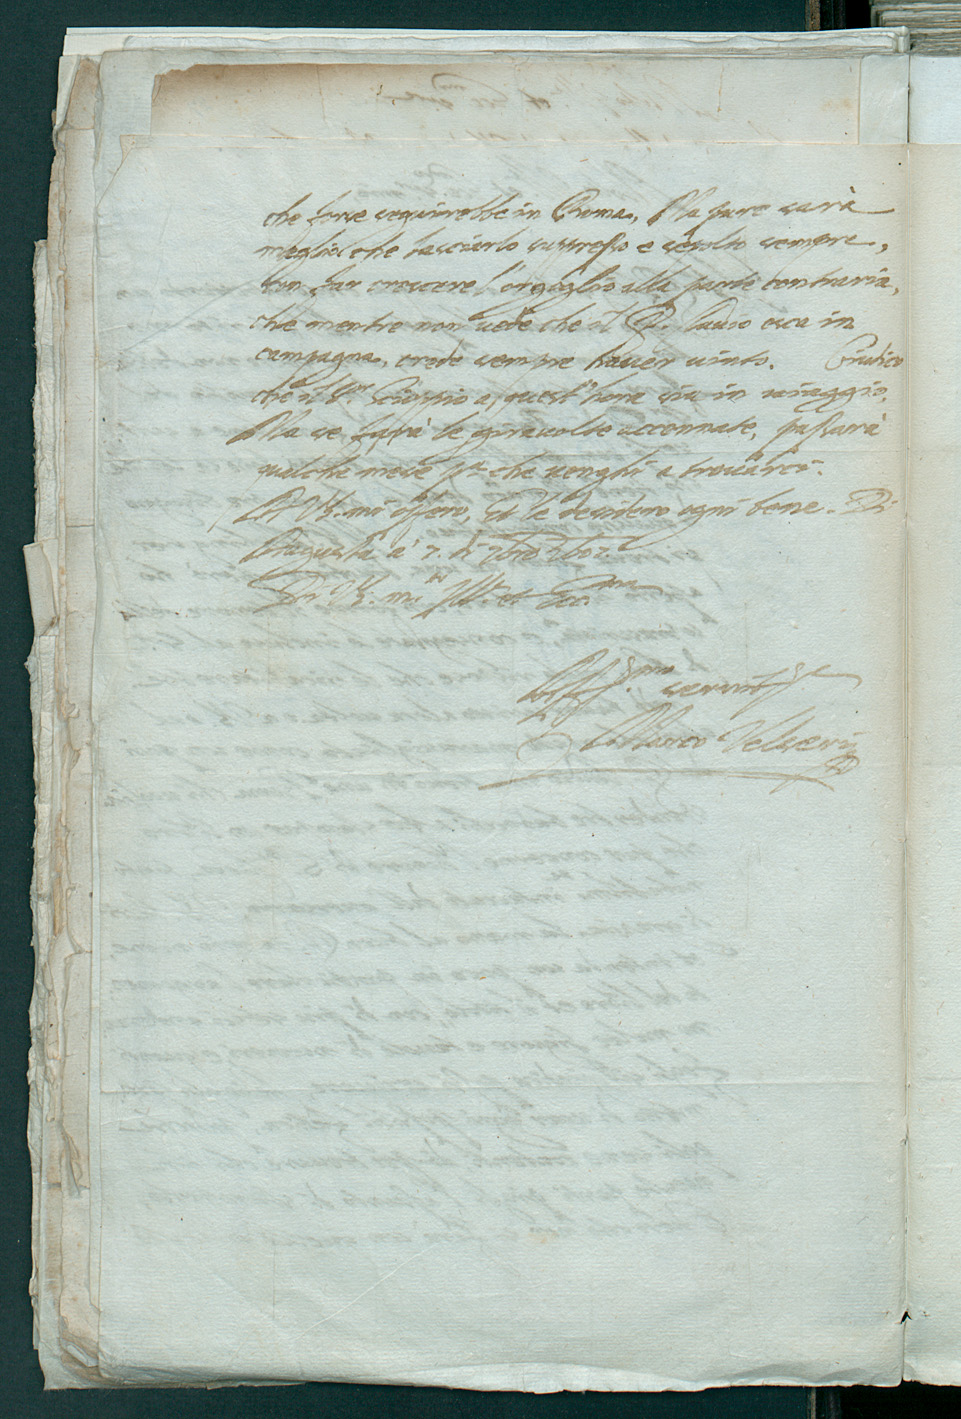 che forse seguirebbe in Roma, Ma pure sarà
meglio che lasciarlo suppresso e sepolto sempre,
con far crescere l'orgoglio alla parte contraria,
che mentre non vede che il P. Savio esca in
campagna, crede sempre haver vinto. Giudico
che il Sr. Scioppio a quest'hora sia in viaggio,
Ma se farà le giravolte accennate, passarà
qualche mese pa. che venghi a trovarci.
A VS. mi offero, et le desidero ogni bene. Di
Augusta à 7. di 7bre
Di VS. m. Ill. et Ecc.ma
Aff.mo servit.re
Marco Velseri